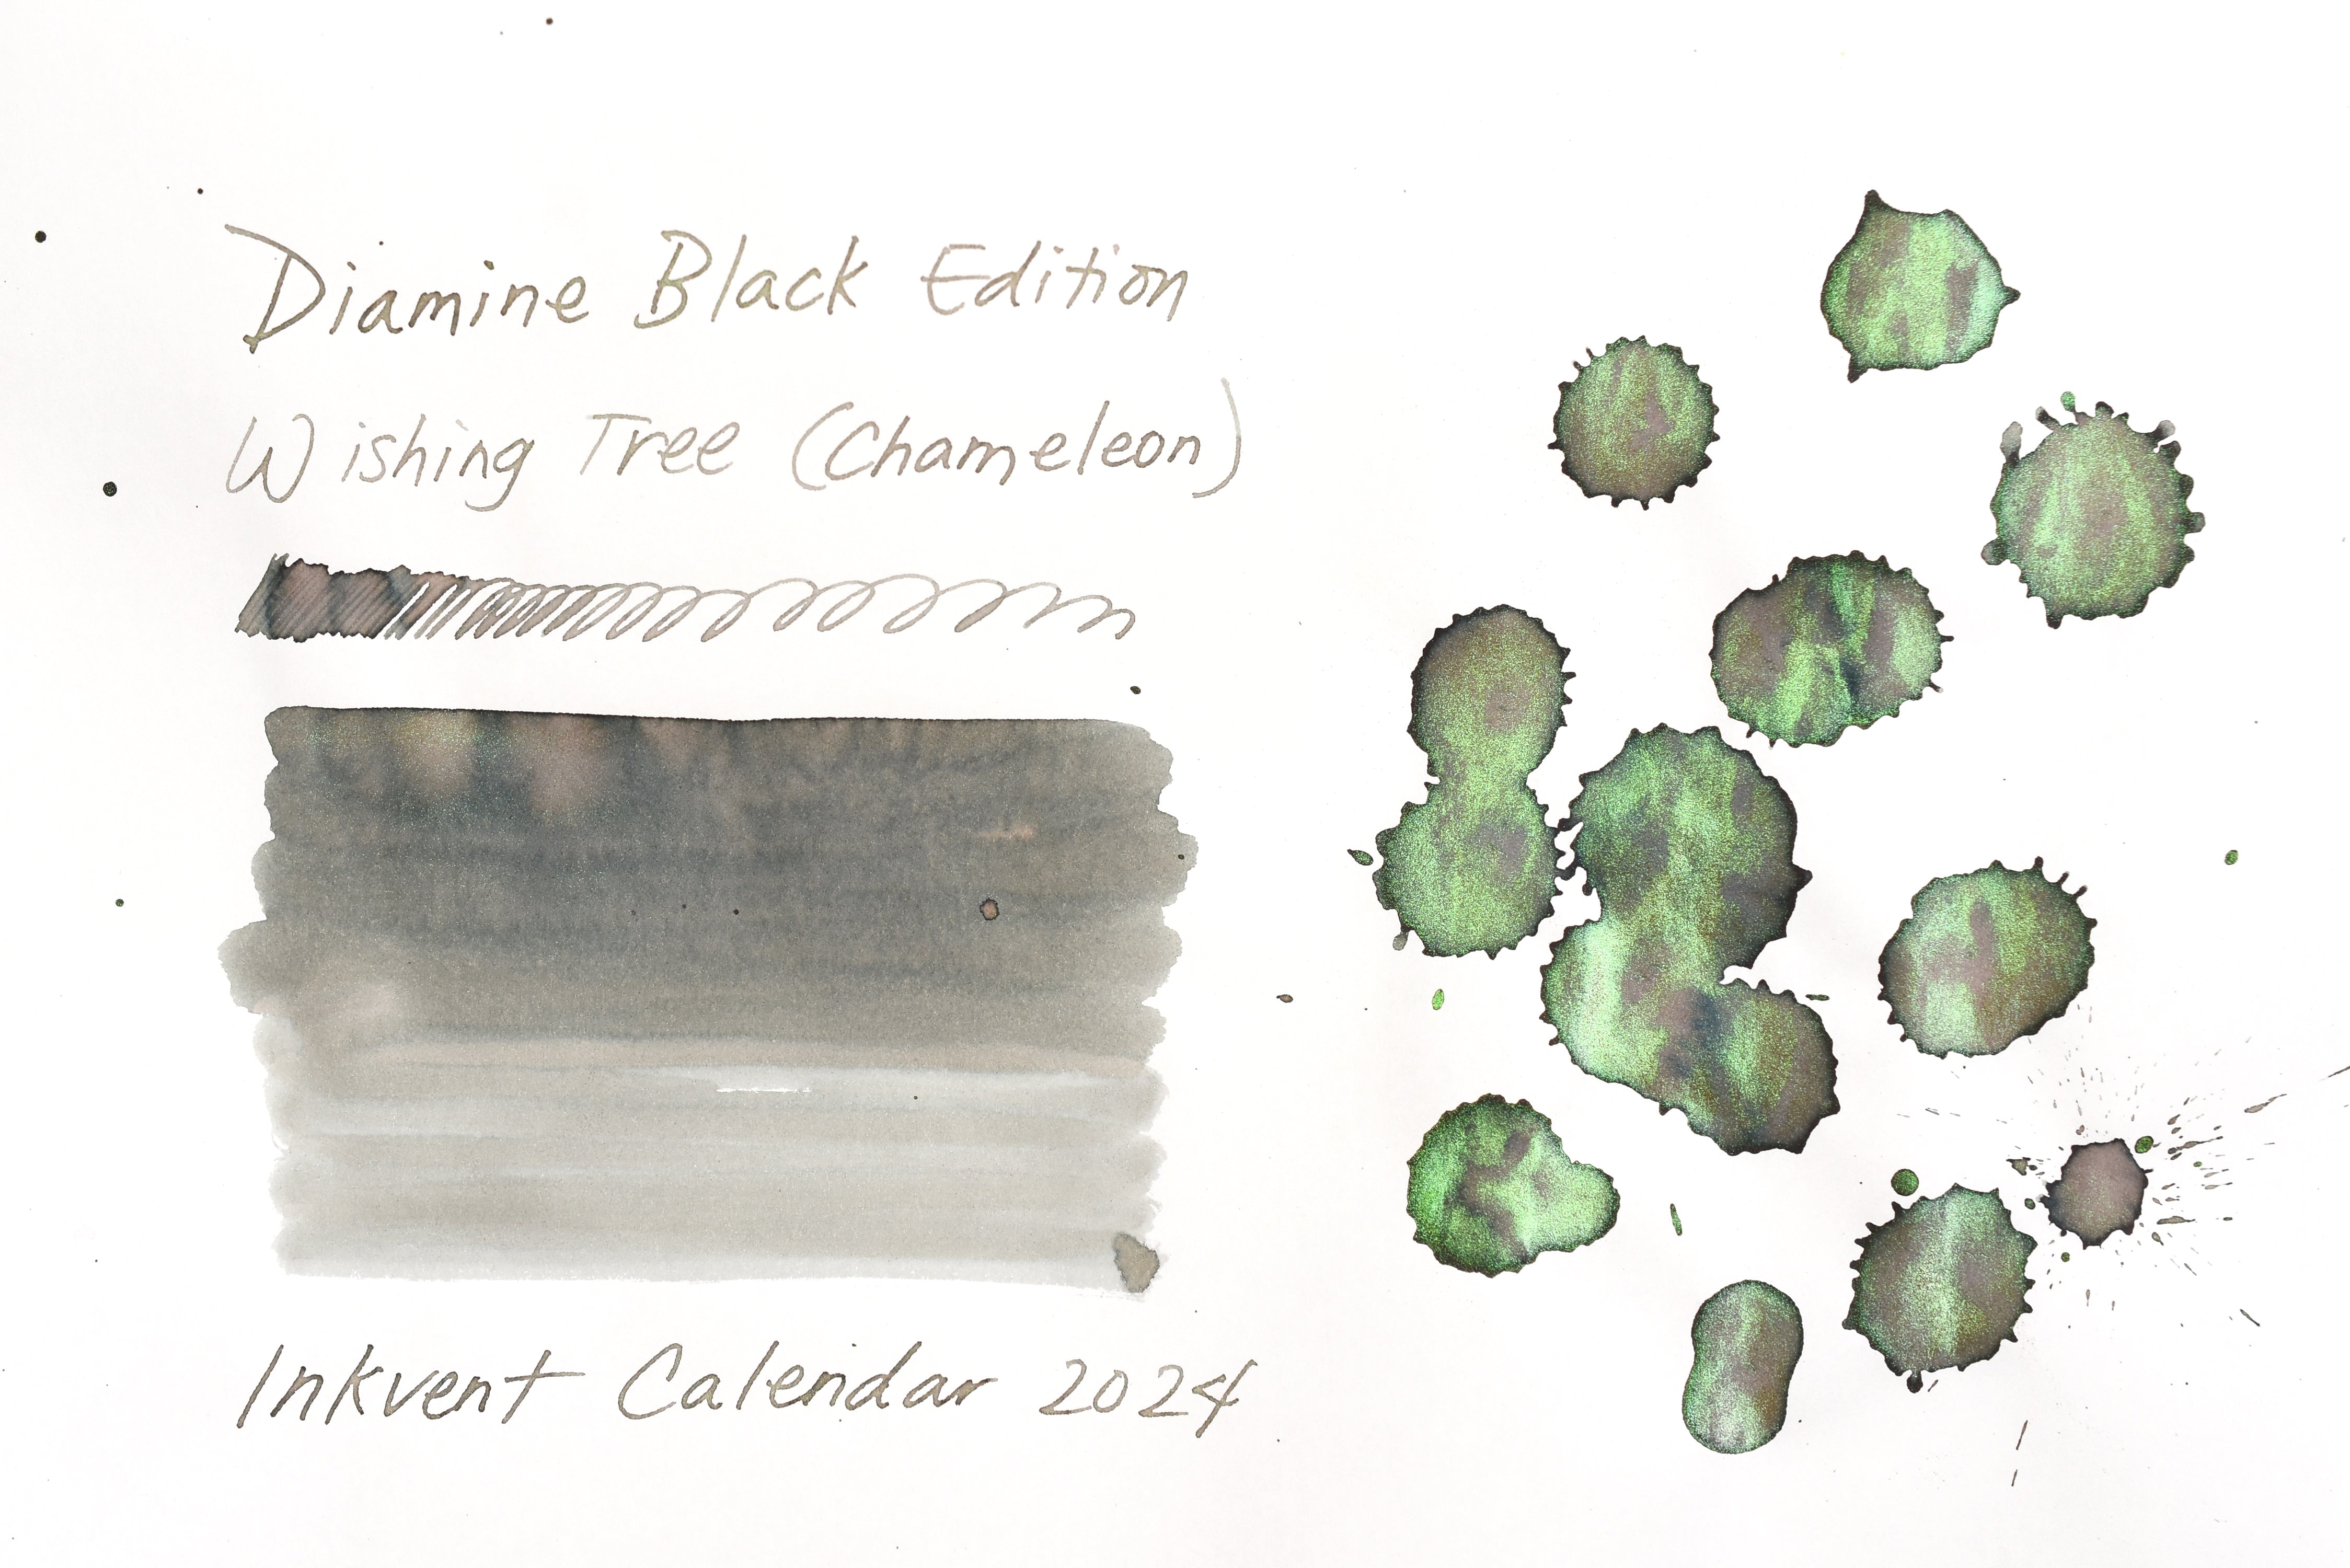 Diamine Black Edition
Wishing Tree (Chameleon)
Inkvent Calendar 2024